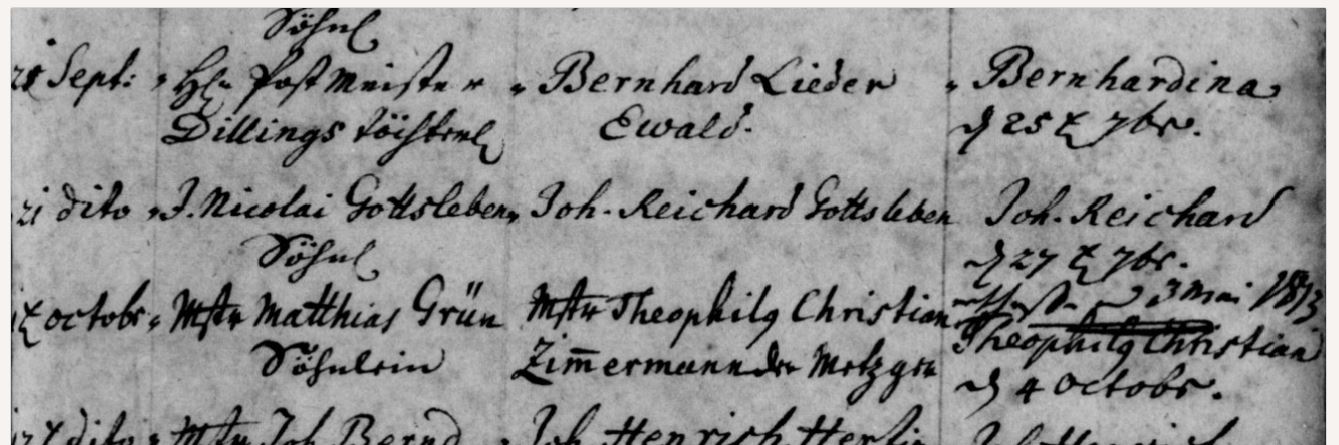 Söhnl
25 Sept: Hℓn Postmeister Bernhard Lieder Bernhardina
Dillings töchterl Ewald. d 25 7br.
dito J. Nicolai Gottsleben Joh. Reichard Gottsleben Joh. Reichard
Söhnl d 27 7br.
octobr Mstr Matthias Grün Mstr Theophilg Christian 3 Mai 1813
Söhnlein Zim̄ermann der Metzger Theophilg Christian
d 4 octobr.
dito Mstr Joh Bernd Joh Henrich